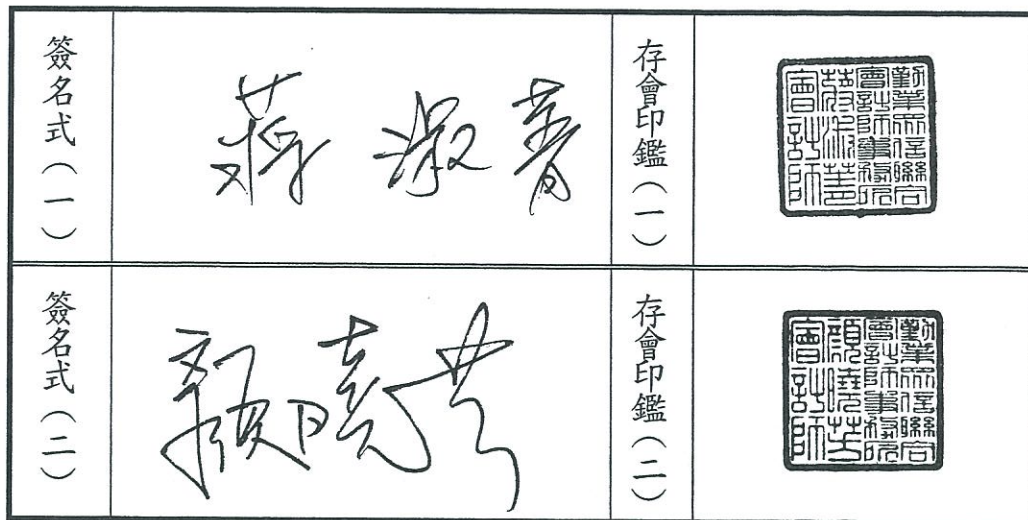 簽名式(一)
蔣淑菁
存會印鑑(一)
勤業眾信聯合
會計師事務所
蔣淑菁
會計師
簽名式(二)
顏曉芳
存會印鑑(二)
勤業眾信聯合
會計師事務所
顏曉芳
會計師